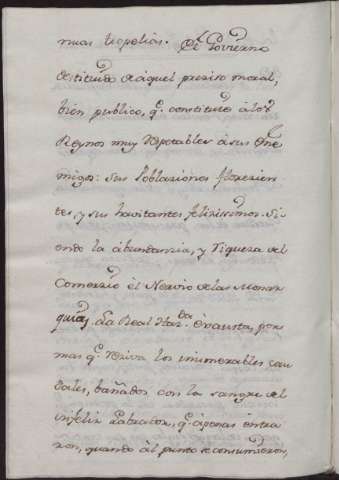 nuas tropelias. El Govierno
destituido de aquel preciso moral,
bien publico, q.e constituie à los
Reynos muy respetables à sus Ene
migos: sus Poblaziones florezien
tes, y sus havitantes felizissimos. Si
endo la abundanzia, y riqueza del
Comerzio èl Nervio de las Monar
quias. La Real Haz.da exausta, por
mas q.e reziva los inumerables cau
dales, bañados con la sangre del
infeliz Labrador, q.e àpenas entra
ron, quando àl punto se consumieron,